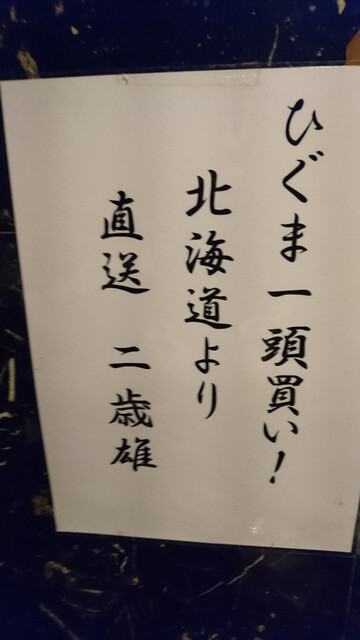 ひぐま一頭買い!
北海道より
直送 二歳雄